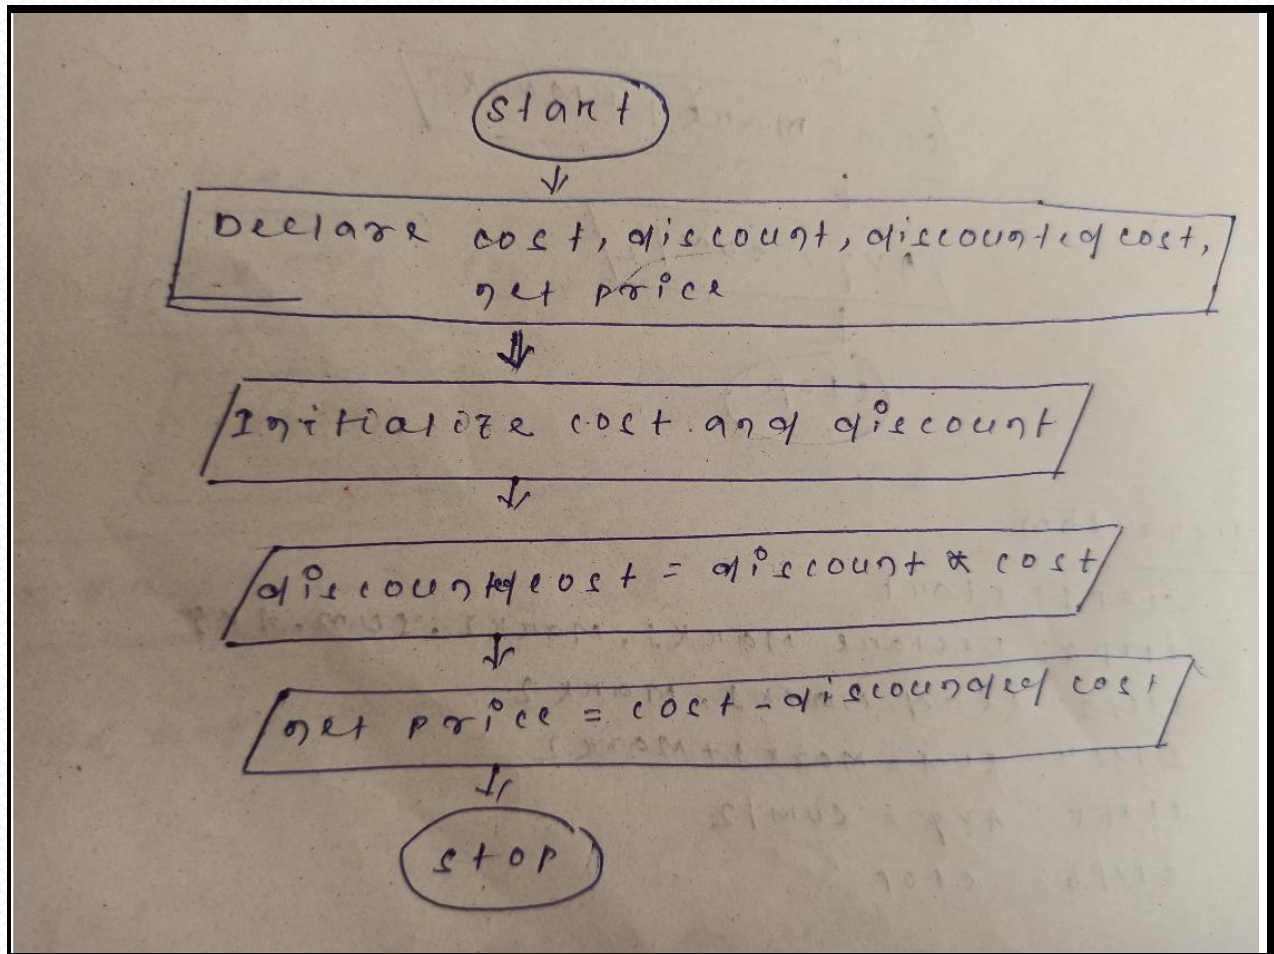 start
Declare cost, discount, discounted cost,
net price
Initialize cost and discount
discountedcost = discount * cost
net price = cost - discounded cost
stop